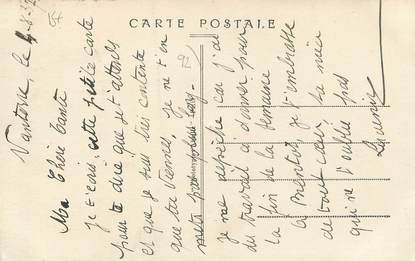 CARTE POSTALE
Ma Chère tante
je t'écris cette petite carte
pour te dire que je t'attends
et que je suis très contente
que tu viennes, je ne t'en
mets pas plus long
je me dépêche car j'ai
du travail à donner pour
la fin de la semaine
à Bientôt je t'embrasse
de tout cœur ta nièce
qui ne t'oublie pas